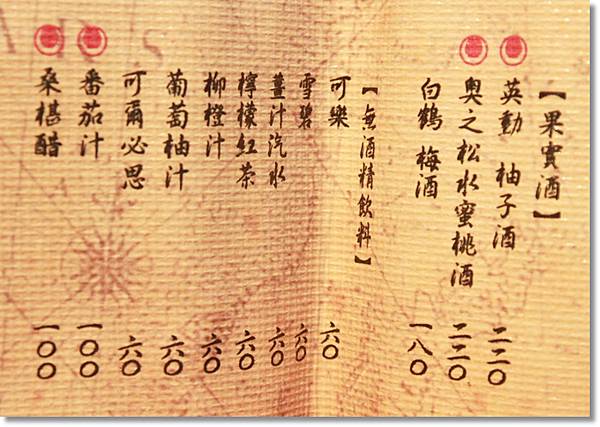 【果實酒】
英勳 柚子酒 二二〇
奥之松水蜜桃酒 二二〇
白鶴 梅酒 一八〇
【無酒精飲料】
可樂 六〇
雪碧 六〇
薑汁汽水 六〇
檸檬紅茶 六〇
柳橙汁 六〇
葡萄柚汁 六〇
可爾必思 六〇
番茄汁 一〇〇
桑椹醋 一〇〇